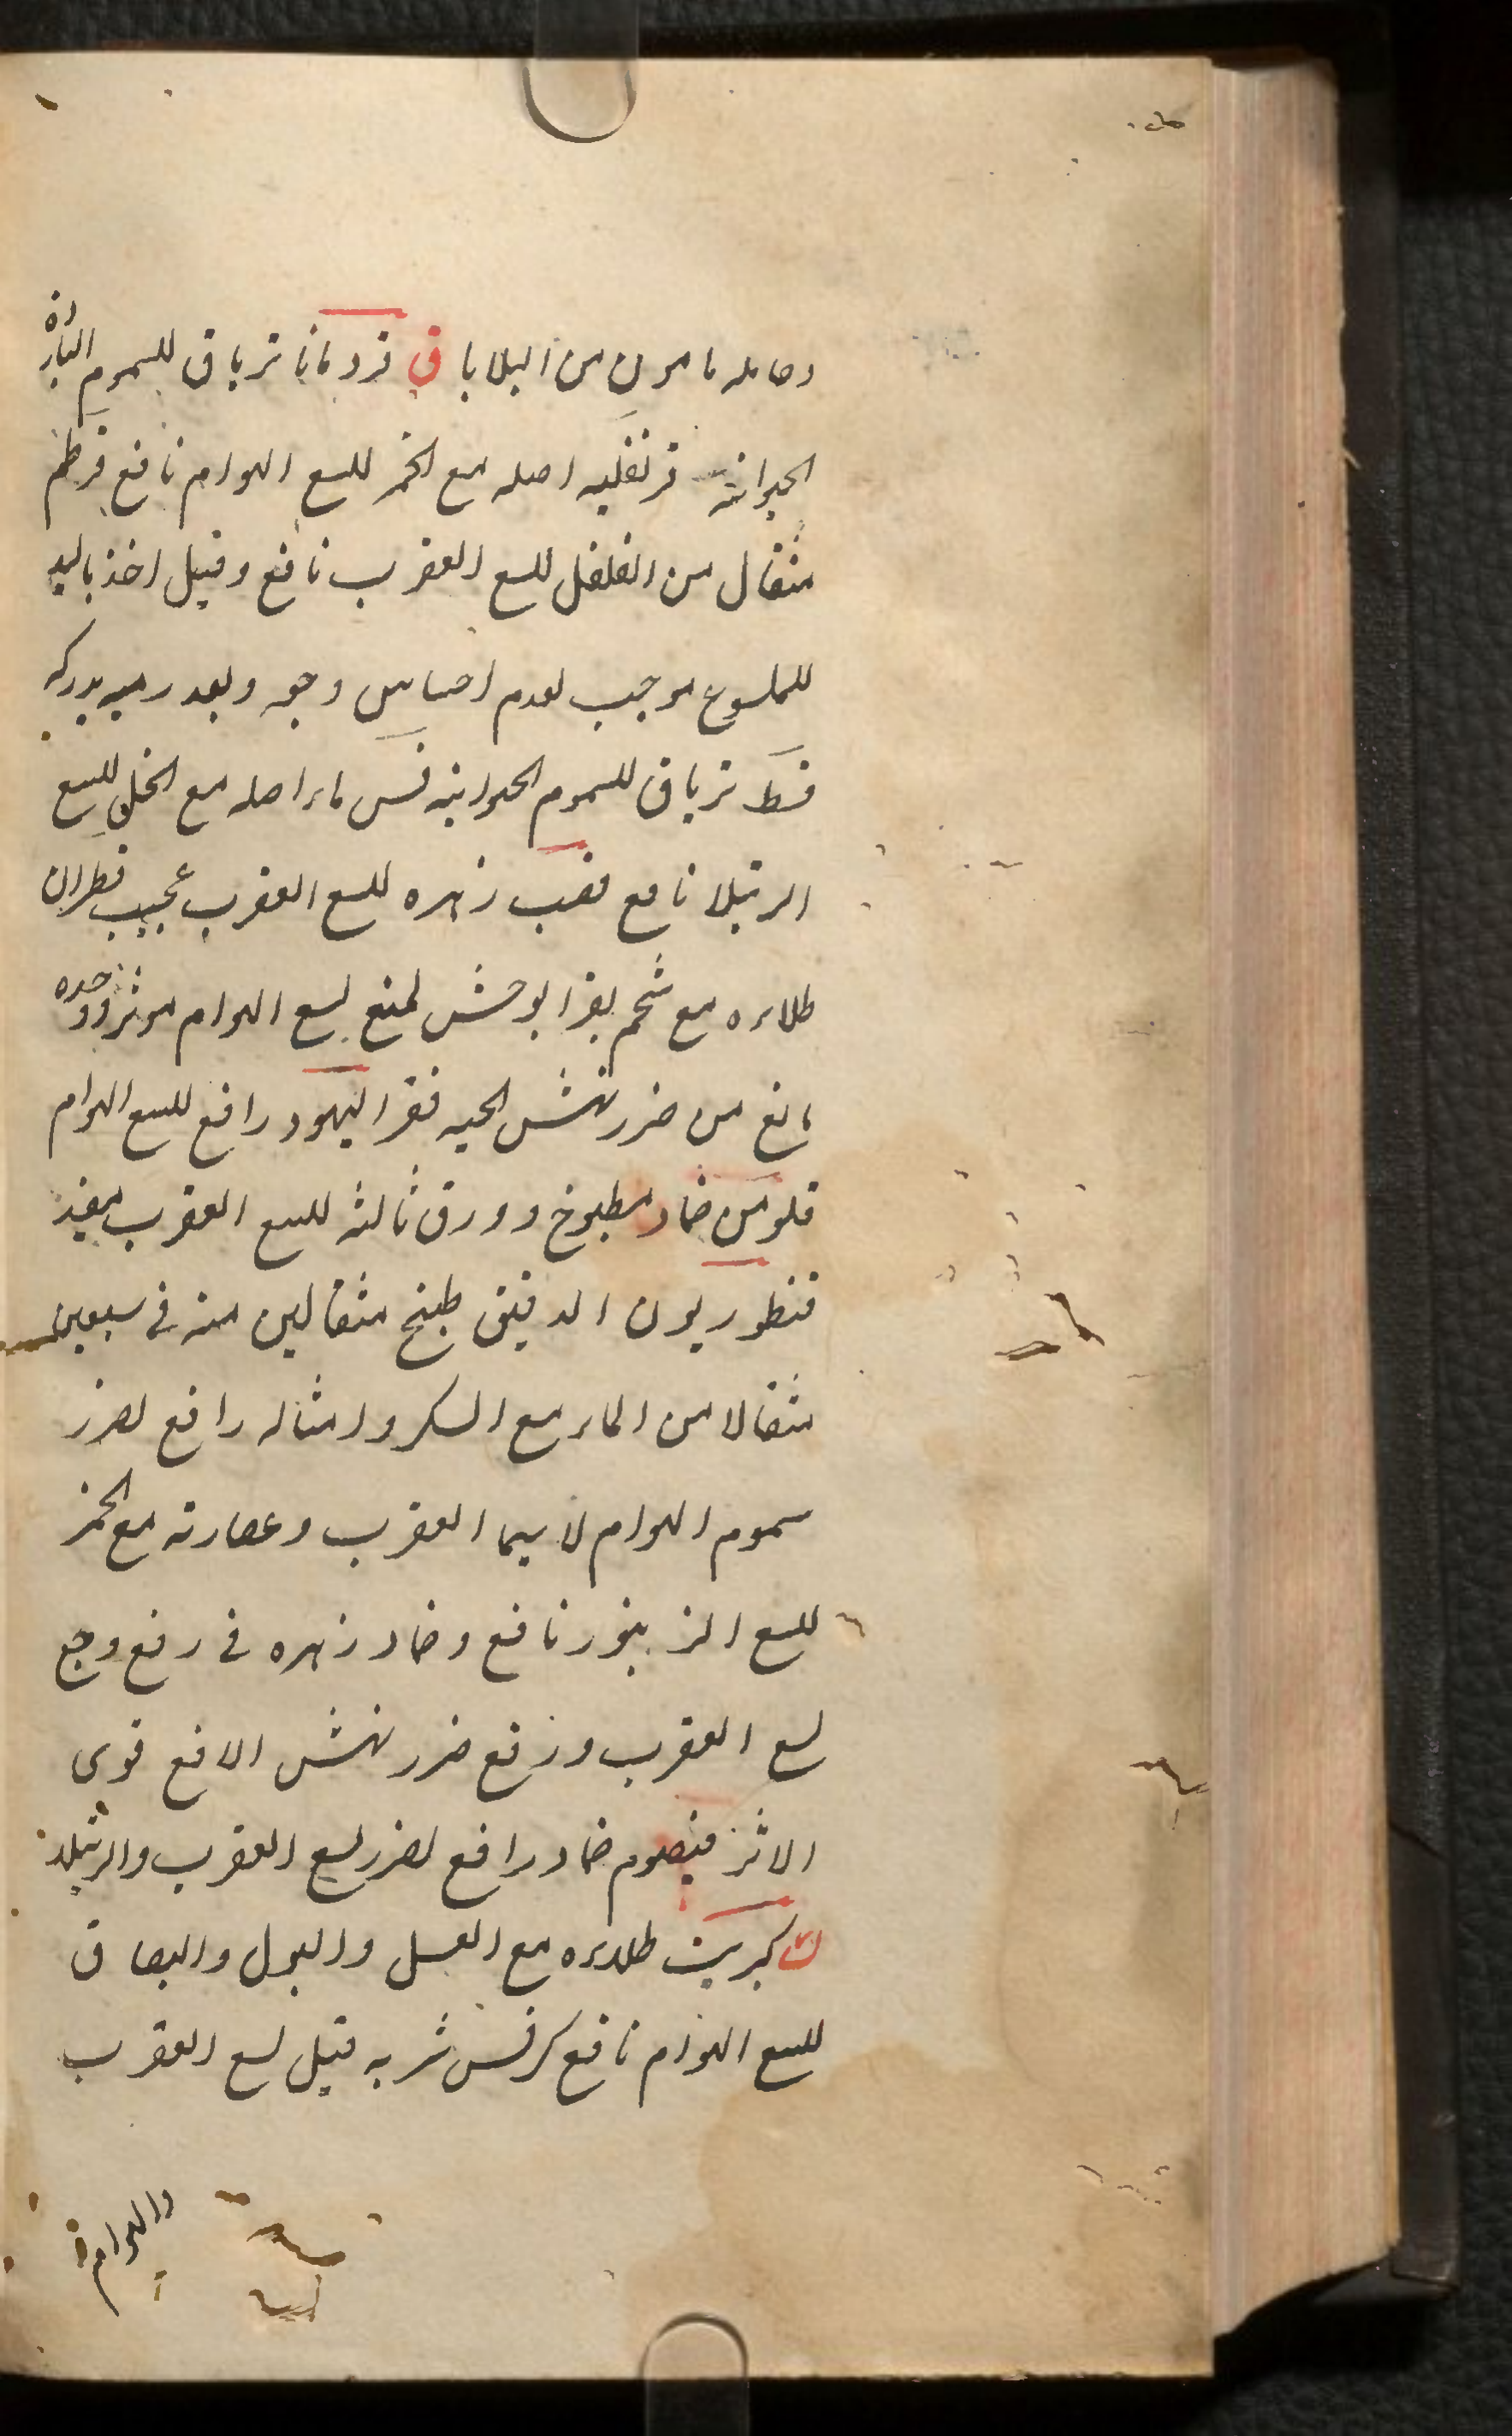 وحامله مامون من البلايا ق قردمانا ترياق للسموم الباردة
الحيوانية قرنفليه اصله مع الخمر للسع الهوام نافع قرطم
مثقال من الفلفل للسع العقرب نافع وقيل اخذ باليد
للملسوع موجب لعدم احساس وجعه وبعد رميه يدركه
قسط ترياق للسموم الحيوانيه قسس ماء اصله مع الخل للسع
الرتيلا نافع قصب زهره للسع العقرب عجيب قطران
طلاءه مع شحم بقر الوحش لمنع لسع الهوام موثر ووحده
مانع من ضرر نهش الحيه قفر اليهود رافع للسع الهوام
قلومس ضماد مطبوخ وورق ثالثه للسع العقرب مفيد
قنطوريون الدقيق طبخ مثقالين منه في سبعين
مثقالا من الماء مع السكر وامثاله رافع لضرر
سموم الهوام لا سيما العقرب وعصارته مع الخمر
للسع الزنبور نافع وضماد زهره في رفع وجع
لسع العقرب ورفع ضرر نهش الافع قوى
الاثر قيصوم ضماد رافع لضرر لسع العقرب والرتيلا
ك كبريت طلاءه مع العسل والبول والبصاق
للسع الهوام نافع كرفس شربه قبل لسع العقرب
والهوام